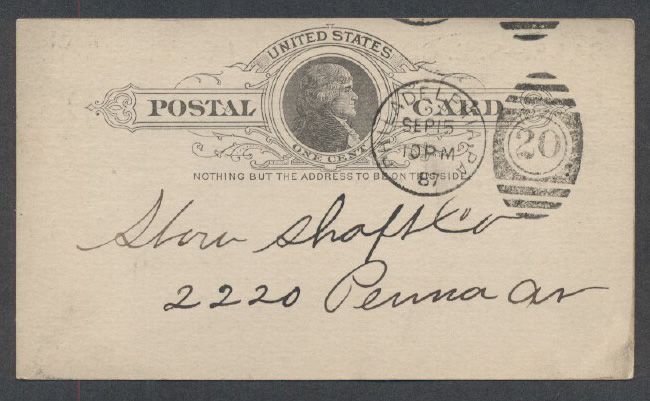 UNITED STATES
POSTAL CARD
ONE CENT
PHILADELPHIA, PA.
SEP 15
10 PM
87
20
NOTHING BUT THE ADDRESS TO BE ON THIS SIDE
Stow Shaft & Co
2220 Penna av